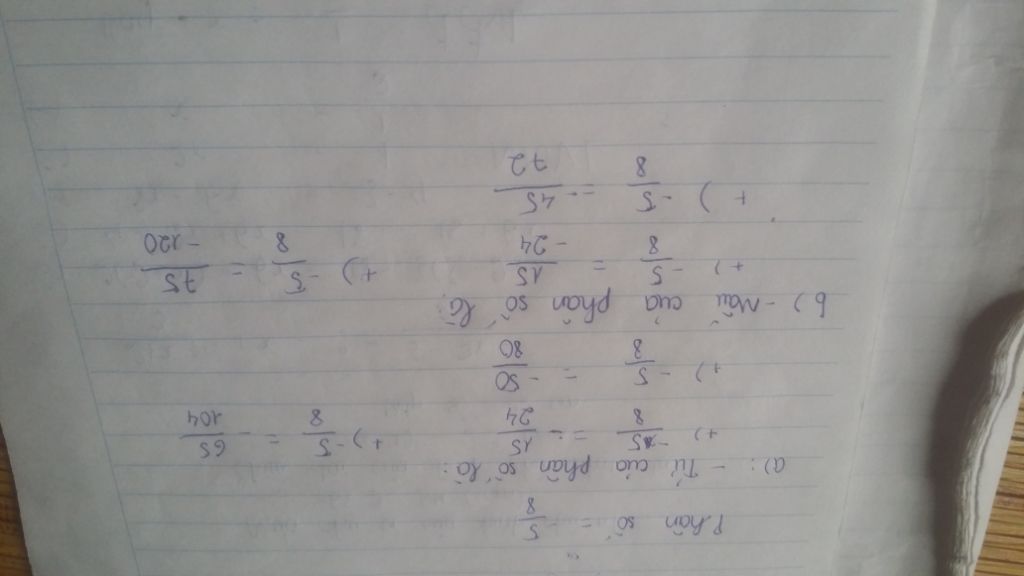 Phân số = -5/8
a): - Tử của phân số là:
+) -5/8 = -15/24 +) -5/8 = -65/104
+) -5/8 = -50/80
b) - Mẫu của phân số là:
+) -5/8 = 15/-24 +) -5/8 = 75/-120
+) -5/8 = -45/72